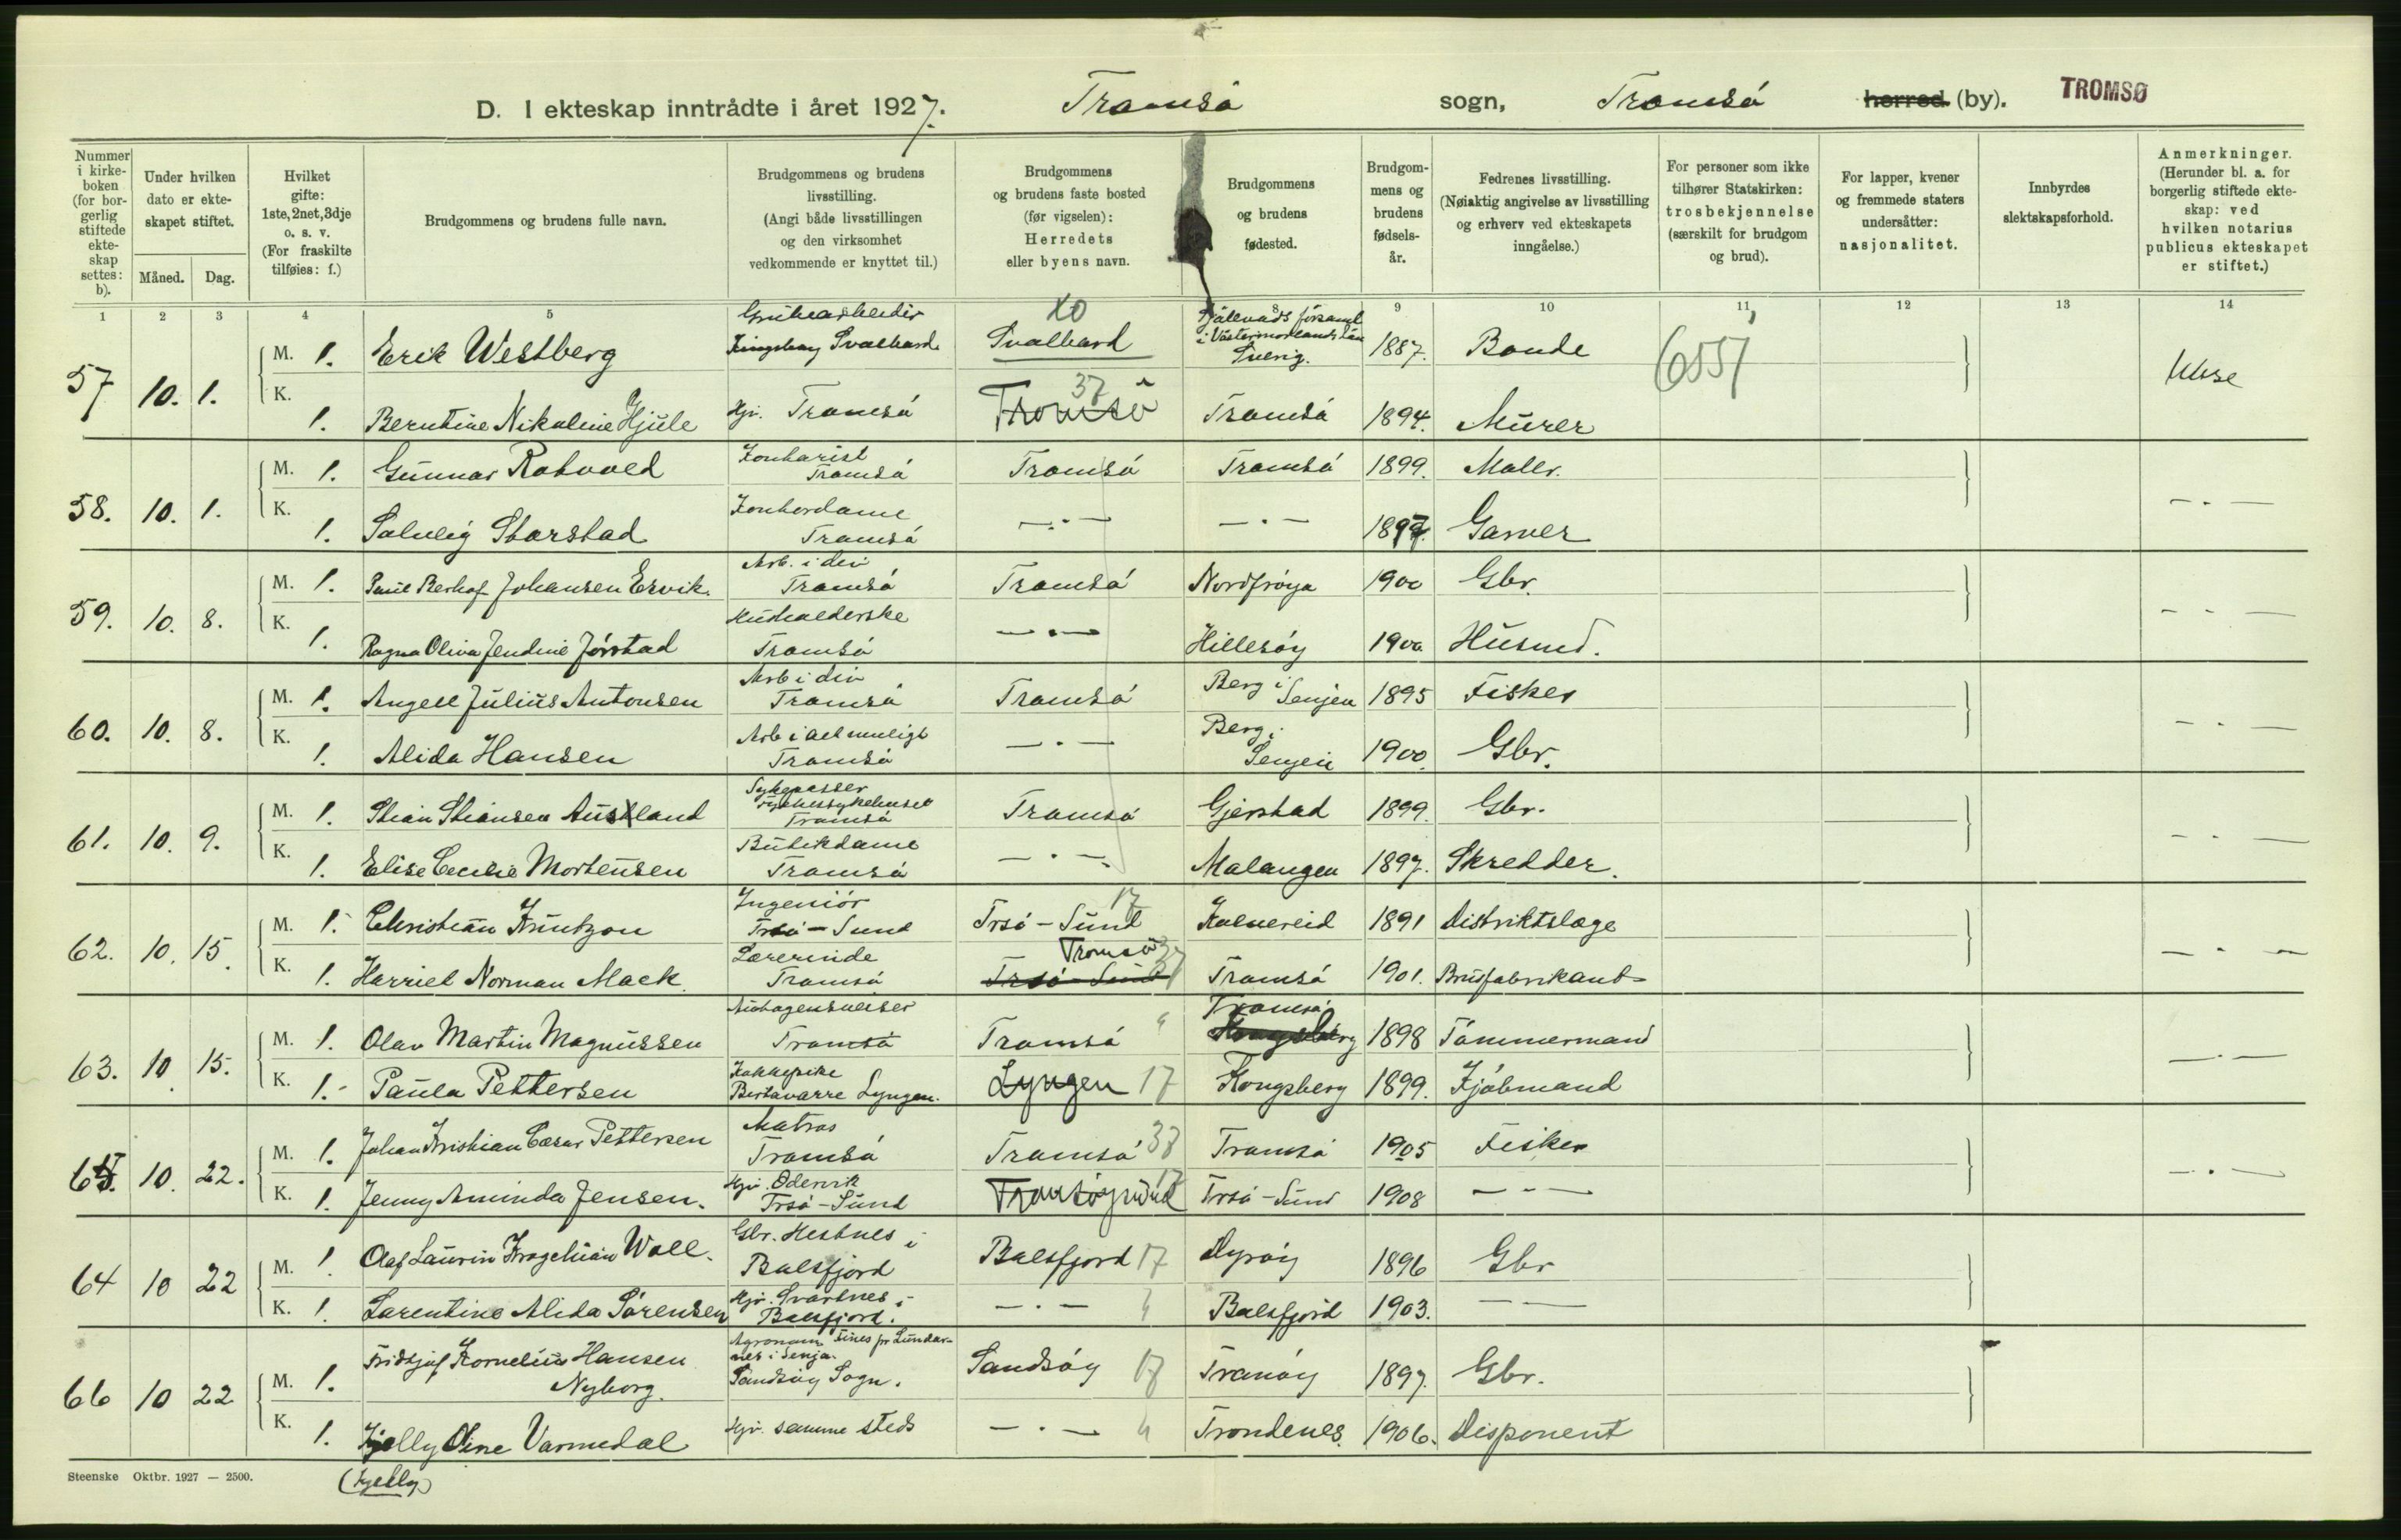 D. I ekteskap inntrådte i året 1927. Tromsö sogn, Tromsö herred (by). TROMSØ
Nummer i kirkeboken (for borgerlig stiftede ekteskap settes: b).
Under hvilken dato er ekteskapet stiftet.
Måned. Dag.
Hvilket gifte: 1ste, 2net, 3dje o. s. v. (For fraskilte tilføies: f.)
Brudgommens og brudens fulle navn.
Brudgommens og brudens livsstilling. (Angi både livsstillingen og den virksomhet vedkommende er knyttet til.)
Brudgommens og brudens faste bosted (før vigselen): Herredets eller byens navn.
Brudgommens og brudens fødested.
Brudgommens og brudens fødselsår.
Fedrenes livsstilling. (Nøiaktig angivelse av livsstilling og erhverv ved ekteskapets inngåelse.)
For personer som ikke tilhører Statskirken: trosbekjennelse (særskilt for brudgom og brud).
For lapper, kvener og fremmede staters undersåtter: nasjonalitet.
Innbyrdes slektskapsforhold.
Anmerkninger. (Herunder bl. a. for borgerlig stiftede ekteskap: ved hvilken notarius publicus ekteskapet er stiftet.)
1 2 3 4 5 8 9 10 11 12 13 14
57 10. 1. M. 1. Erik Westberg Grubearbeider Kingsbay Svalbard X0 Svalbard i Västernorlands län Sverig. 1887. Bonde 6551
K. 1. Berntine Nikoline Hjule Hjv. Tromsö Tromsö 37 Tromsö 1894. Murer
58. 10. 1. M. 1. Gunnar Rotvold Kontorist Tromsö Tromsö Tromsö 1899. Maler. — · —
K. 1. Solveig Storstad Kontordame Tromsö — · — — · — 1897. Garver
59. 10. 8. M. 1. Johansen Ervik. Arb. i div Tromsö Tromsö Nordfröya 1900 Gbr. — - —
K. 1. Ragna Oliva Jendine Jörstad Husholderske Tromsö — · — Hillesöy 1900. Husmd.
60. 10. 8. M. 1. Angell Julius Antonsen Arb i div Tromsö Tromsö Berg i Senjen 1895 Fisker — · —
K. 1. Alida Hansen Arb i alt muligt Tromsö — · — Berg i Senjen 1900. Gbr.
61. 10. 9. M. 1. Stian Stiansen Ausland Sykepasser Tromsö Tromsö Gjerstad 1899. Gbr. — · —
K. 1. Elise Cecilie Mortensen Butikdame Tromsö — · — Malangen 1897. Skredder.
62. 10. 15. M. 1. Christian Kuntzon Ingeniör Trsö - Sund Trsö - Sund 17 1891 Distriktslæge — · —
K. 1. Harriet Norman Mack. Lærerinde Tromsö Tromsö 37 Trsö - Sund Tromsö 1901. Brusfabrikant
63. 10 15. M. 1. Olav Martin Magnussen Tromsö Tromsö Tromsö Kongsberg 1898 Tömmermand — · —
K. 1. Paula Pettersen Kokkepike Birtavarre Lyngen. Lyngen 17 Kongsberg 1899. Kjöbmand
65. 10. 22. M. 1. Johan Kristian Cæsar Pettersen Matros Tromsö Tromsö 37 Tromsö 1905 Fisker — · —
K. 1. Jenny Aminda Jensen. Hjv.Ödervik Trsö - Sund Tromsöysund 17 Trsö - Sund 1908 — - —
64 10 22 M. 1. Olaf Laurin Krogelian Woll. Gbr. Hestnes i Balsfjord Balsfjord 17 Dyröy 1896 Gbr
K. 1. Lorentine Alida Sörensen Hjv. Svartnes i Balsfjord. — · — Balsfjord 1903. — —
66 10 22 M. 1. Fridtjof Kornelius Hansen Nyborg. Agronom Fines pr Lundenes i Senja. Sandsöy Sogn. Sandsöy 17 Tranöy 1897. Gbr.
K. 1. Kjelly Oline Varmedal Hjv. samme steds — · — Trondenes. 1906. Disponent
(Kjelly)
Steenske Oktbr. 1927 — 2500.